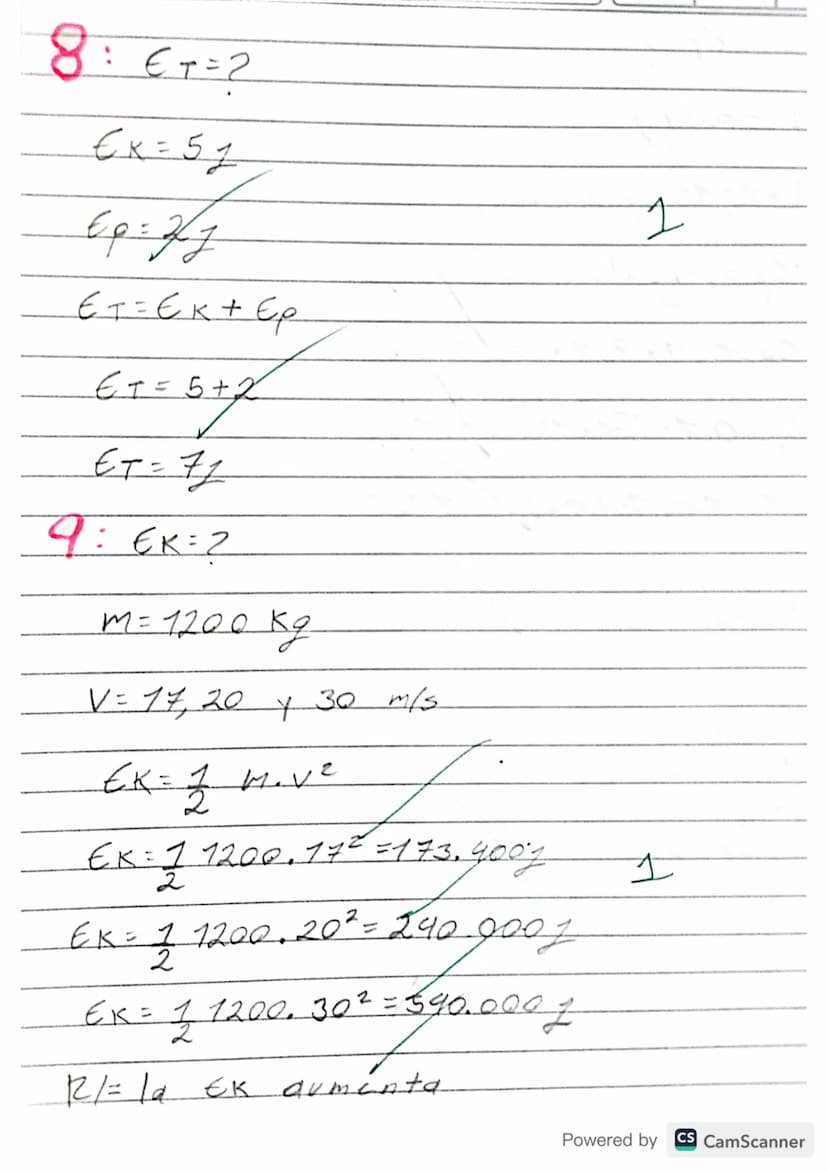 8: ET=?
EK=5J
Ep=2J
1
ET=EK+Ep
ET=5+2
ET=7J
9: EK=?
m=1200 Kg
V=17,20 y 30 m/s
EK=1/2 m.v²
EK=1/2 1200.17²=173.400J
1
EK=1/2 1200.20²=240.000J
EK=1/2 1200.30²=540.000J
R/= la EK aumenta
Powered by CS CamScanner